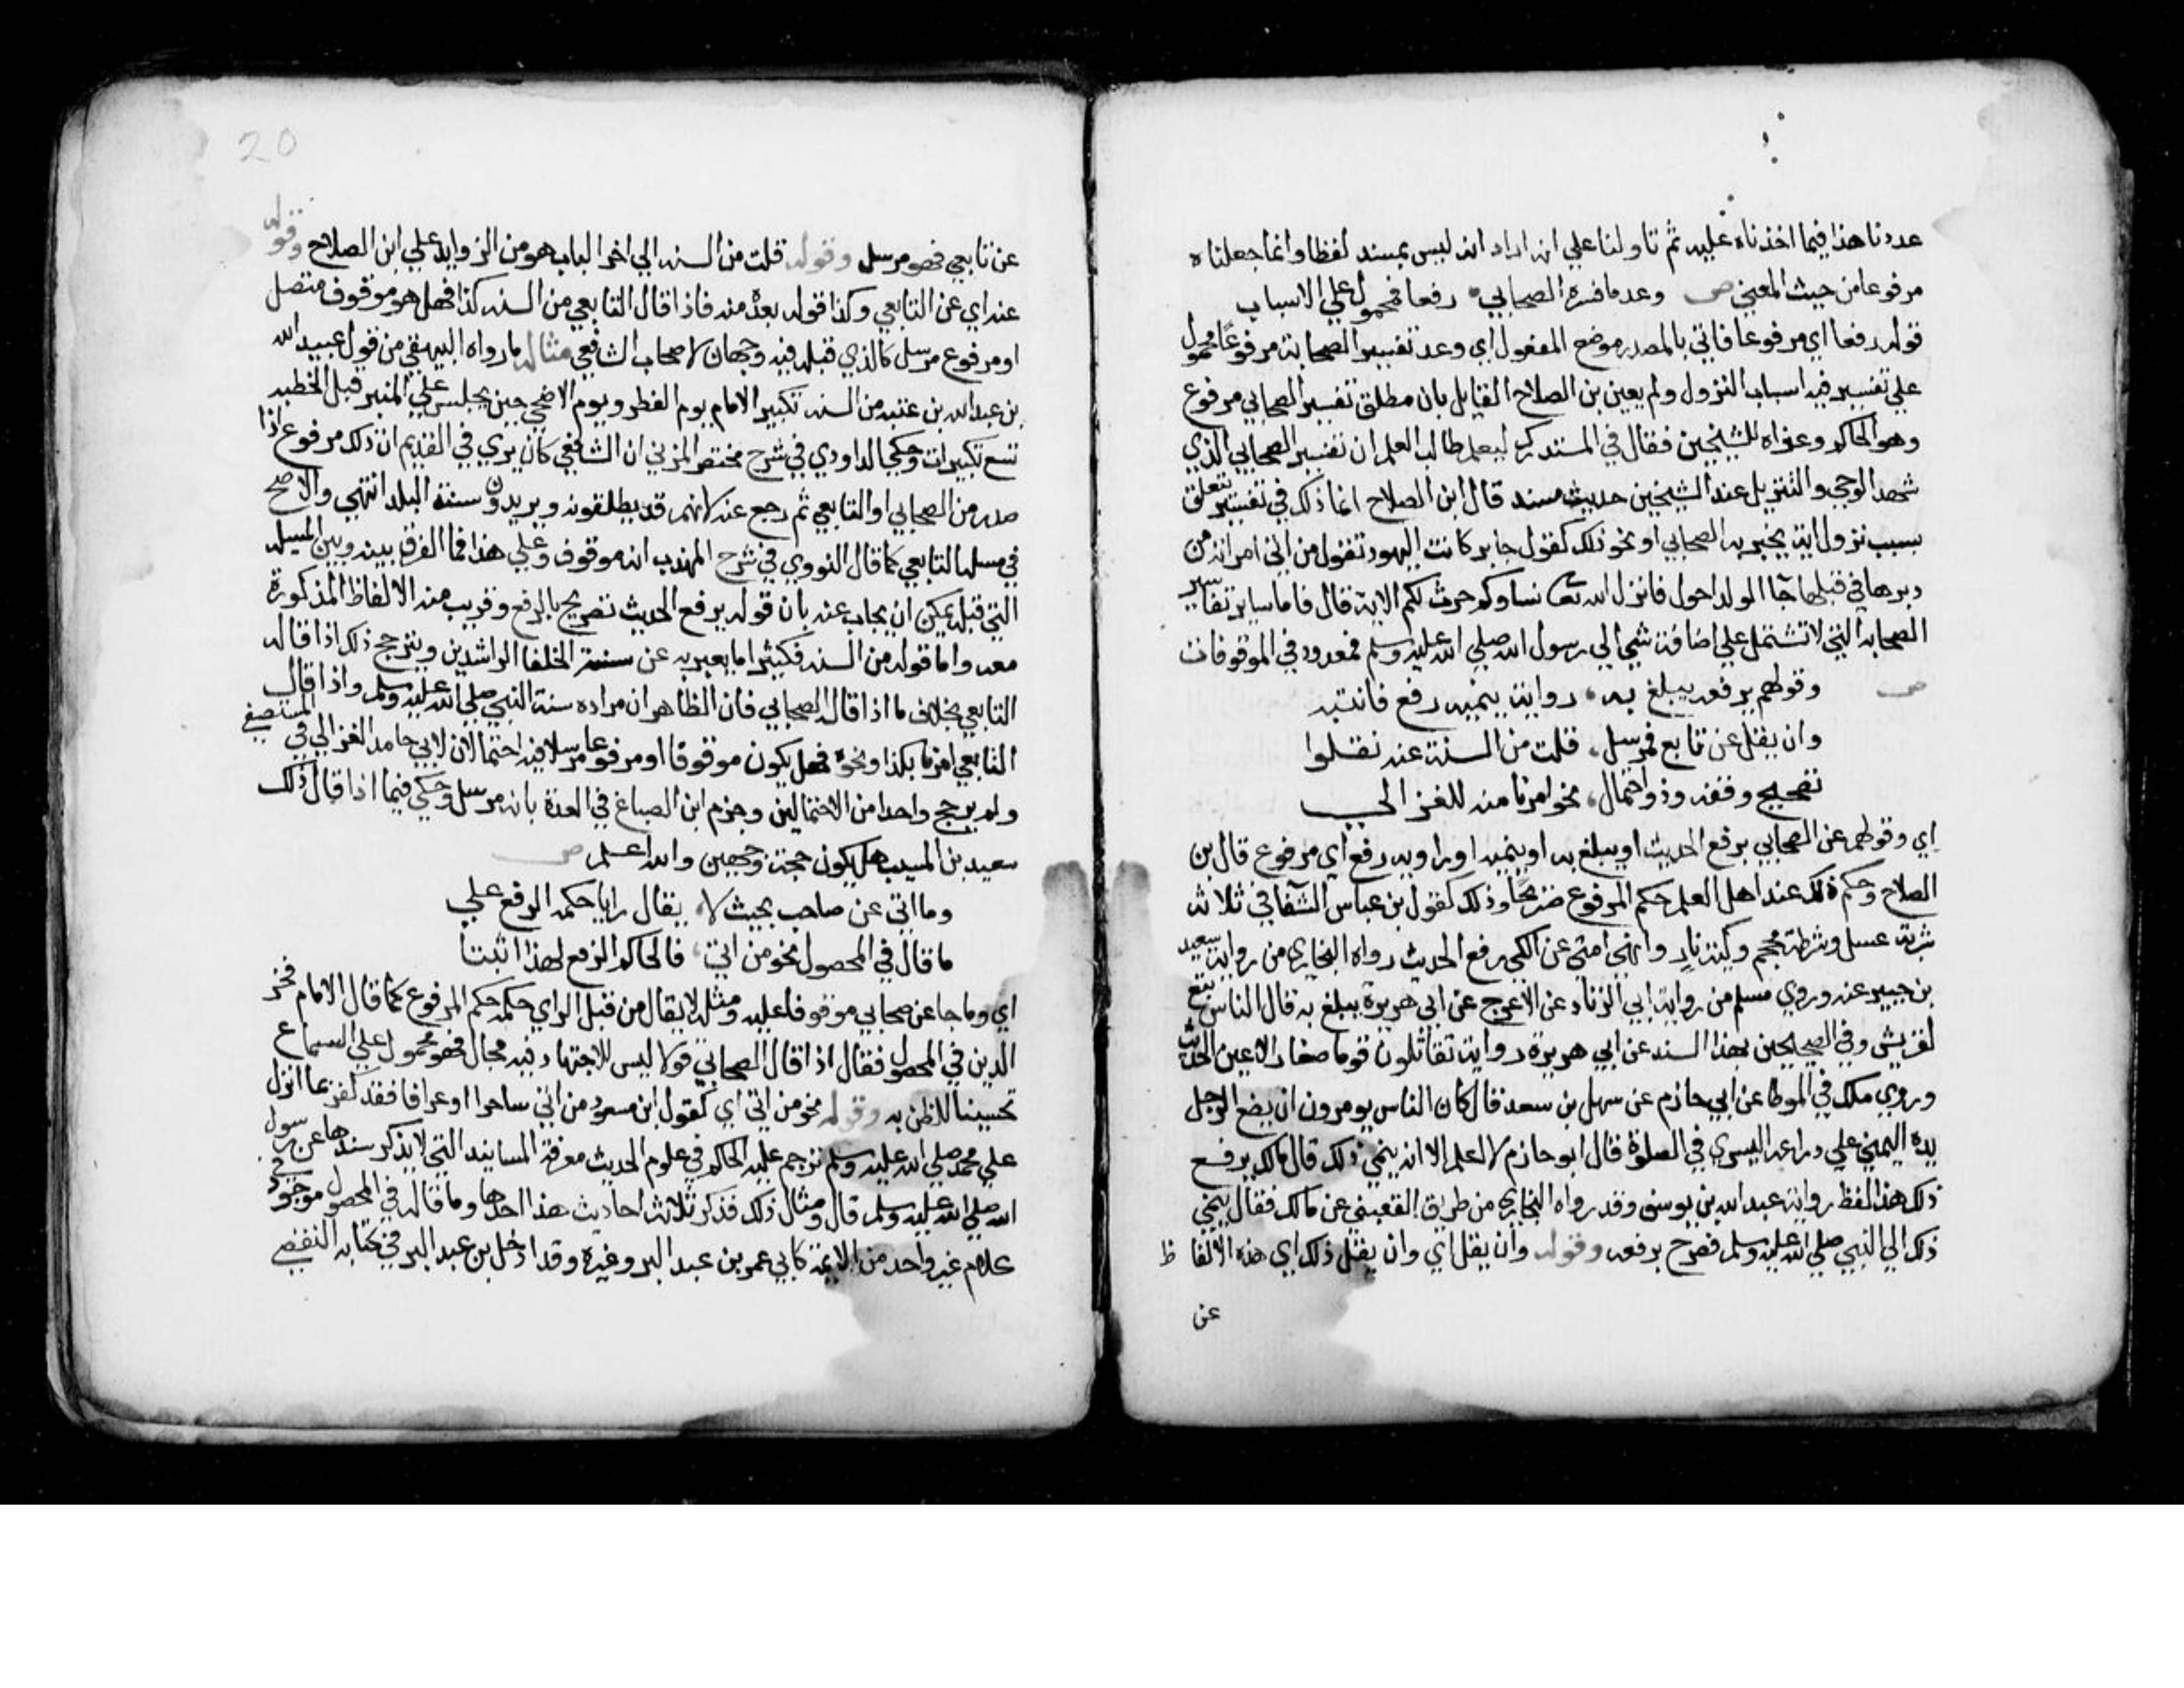 عددنا هذا فيما اخذناه عليه ثم تاولنا علي انه اراد انه ليس بمسند لفظا وانما جعلناه
مرفوعا من حيث المعني ص وعد ما فسره الصحابي رفعا فمحمول علي الاسباب
قوله رفعا اي مرفوعا فاتي بالمصدر موضع المفعول اي وعد تفسير الصحابة مرفوعا محمول
علي تفسير فيه اسباب النزول ولم يعين بن الصلاح القايل بان مطلق تفسير الصحابي مرفوع
وهو الحاكم وعزاه للشيخين فقال في المستدرك ليعلم طالب العلم ان تفسير الصحابي الذي
شهد الوحي والتنزيل عند الشيخين حديث مسند قال ابن الصلاح انما ذلك في تفسير يتعلق
بسبب نزول اية يخبر به الصحابي او نحو ذلك كقول جابر كانت اليهود تقول من اتي امراته من
دبرها في قبلها جا الولد احول فانزل الله تعا نساوكم حرث لكم الاية قال فاما ساير تفاسير
الصحابه التي لا تشتمل علي اضافة شي الي رسول الله صلي الله عليه وسلم فمعدود في الموقوفات
ص وقولهم يرفعه يبلغ به رواية ينميه رفع فانتبه
وان يقل عن تابع فمرسل قلت من السنة عنه نقلوا
تصحيح وقفه وذو احتمال نحو امرنا منه للغزالي
اي وقولهم عن الصحابي يرفع الحديث او يبلغ به او ينميه او راويه رفع اي مرفوع قال بن
الصلاح وحكم ذلك عند اهل العلم حكم المرفوع صريحا وذلك كقول بن عباس الشفا في ثلاثة
شربة عسل وشرطة محجم وكية نار وانهي امتي عن الكي رفع الحديث رواه البخاري من رواية سعيد
بن جبير عنه وروي مسلم من رواية ابي الزناد عن الاعرج عن ابي هريرة يبلغ به قال الناس تبع
لقريش وفي الصحيحين بهذا السند عن ابي هريرة رواية تقاتلون قوما صغار الاعين الحديث
وروي ملك في الموطا عن ابي حازم عن سهل بن سعد قال كان الناس يومرون ان يضع الرجل
يده اليمني علي دراعه اليسري في الصلوة قال ابو حازم لا اعلم الا انه ينمي ذلك قال مالك يرفع
ذلك هذا لفظ رواية عبد الله بن يوسف وقد رواه البخاري من طريق القعنبي عن مالك فقال ينمي
ذلك الي النبي صلي الله عليه وسلم فصرح برفعه وقوله وان يقل اي وان يقل ذلك اي هذه الالفاظ
عن
20
عن تابعي فهو مرسل وقوله قلت من السنه الي اخر الباب هو من الزوايد علي ابن الصلاح وقوله
عنه اي عن التابعي وكذا قوله بعده منه فاذا قال التابعي من السنه كذا فهل هو موقوف متصل
او مرفوع مرسل كالذي قبله فيه وجهان لاصحاب الشافعي مثاله ما رواه البيهقي من قول عبيد الله
بن عبد الله بن عتبه من السنه تكبير الامام يوم الفطر ويوم الاضحي حين يجلس علي المنبر قبل الخطبه
تسع تكبيرات وحكي الداودي في شرح مختصر المزني ان الشافعي كان يري في القديم ان ذلك مرفوع اذا
صدر من الصحابي او التابعي ثم رجع عنه لانهم قد يطلقونه ويريدون سنة البلد انتهي والاصح
في مسلة التابعي كما قال النووي في شرح المهذب انه موقوف وعلي هذا فما الفرق بينه وبين المسله
التي قبله يمكن ان يجاب عنه بان قوله يرفع الحديث تصريح بالرفع وقريب منه الالفاظ المذكورة
معه واما قوله من السنه فكثيرا ما يعبر به عن سنة الخلفا الراشدين ويترجح ذلك اذا قاله
التابعي بخلاف ما اذا قاله الصحابي فان الظاهر ان مراده سنة النبي صلي الله عليه وسلم واذا قال
التابعي امرنا بكذا ونحوه فهل يكون موقوفا او مرفوعا مرسلا فيه احتمالان لابي حامد الغزالي في المستصفي
ولم يرجح واحدا من الاحتمالين وجزم ابن الصباغ في العدة بانه مرسل وحكي فيما اذا قال ذلك
سعيد بن المسيب هل يكون حجة وجهين والله اعلم ص
وما اتي عن صاحب بحيث لا يقال رايا حكمه الرفع علي
ما قال في المحصول نحو من اتي فالحاكم الرفع لهذا اثبتا
اي وما جا عن صحابي موقوفا عليه ومثله لا يقال من قبل الراي حكمه حكم المرفوع كما قال الامام فخر
الدين في المحصول فقال اذا قال الصحابي قولا ليس للاجتهاد فيه مجال فهو محمول علي السماع
تحسينا للظن به وقوله نحو من اتي اي كقول ابن مسعود من اتي ساحرا او عرافا فقد كفر بما انزل
علي محمد صلي الله عليه وسلم ترجم عليه الحاكم في علوم الحديث معرفة المسانيد التي لا يذكر سندها عن رسول
الله صلي الله عليه وسلم قال ومثال ذلك فذكر ثلاثة احاديث هذا احدها وما قاله في المحصول موجود في
كلام غير واحد من الايمة كابي عمر بن عبد البر وغيره وقد ادخل بن عبد البر في كتابه التقصي